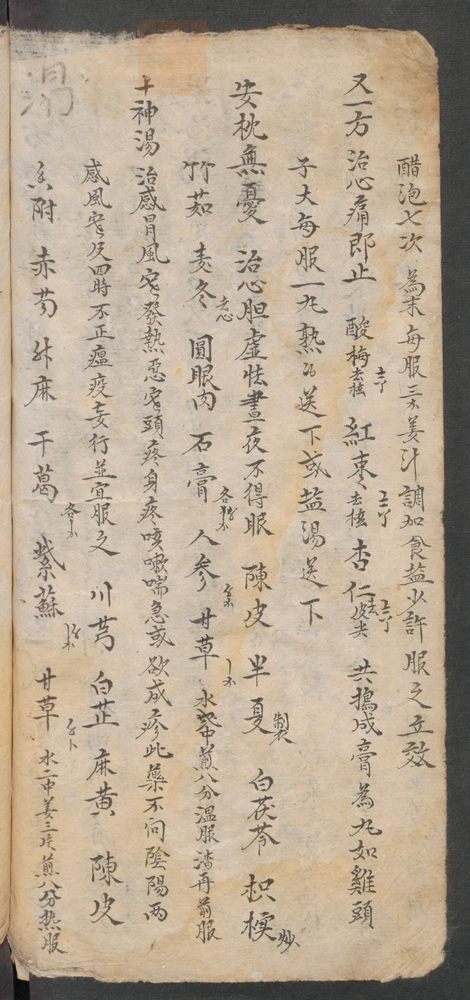 醋泡七次 為末每服三不姜汁調加食盐少許服之立效
又一方 治心痛即止 酸梅去核 紅枣去核 杏仁去皮尖 共搗成膏為丸如雞頭
子大每服一丸熟 送下或盐湯送下
安枕無憂 治心胆虛怯晝夜不得眠 陳皮 半夏製 白茯苓 枳 炒
竹茹 麦冬去心 圓眼肉 石膏 人參 甘草 水 煎八分温服渣再煎服
十神湯 治感冒風寒發熱惡寒頭疼身疼咳嗽喘急或欲成疹此藥不问陰陽两
感風寒及四時不正瘟疫妄行並宜服之 川芎 白芷 麻黄 陳皮
香附 赤芍 升麻 干葛 紫蘇 甘草 水二中姜三片煎八分热服
湯